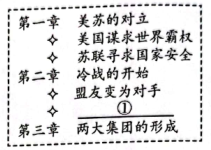 第一章 美苏的对立
✧ 美国谋求世界霸权
✧ 苏联寻求国家安全
第二章 冷战的开始
✧ 盟友变为对手
✧ ①
第三章 两大集团的形成